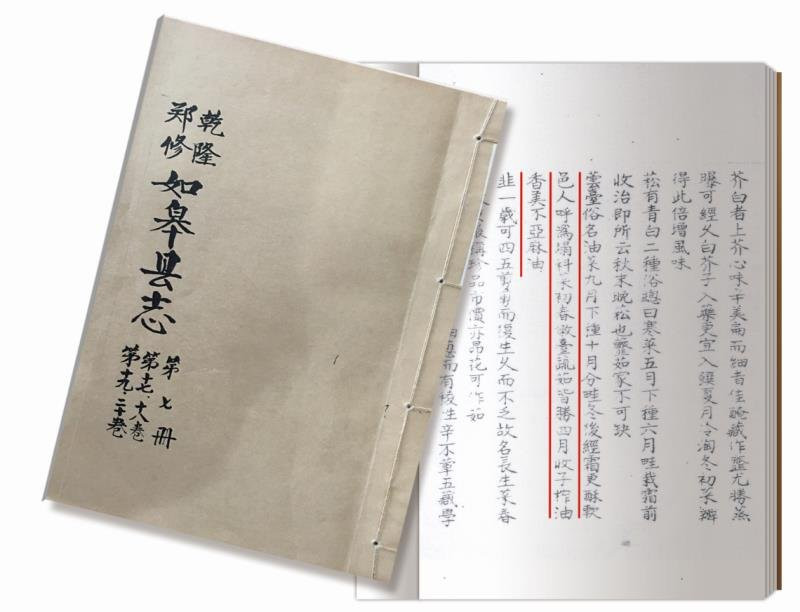 乾隆
郑修
如皋县志
第七册
第十七·十八卷
第十九·二十卷
芥白者上芥心味辛美扁而細者佳醃藏作虀尤勝蒸
曝可經久白芥子入藥更宜入饌夏月冷淘冬初菜辦
得此倍增風味
菘有青白二種俗總曰寒菜五月下種六月畦栽霜前
收治即所云秋末晚菘也虀茹家不可缺
蕓薹俗名油菜九月下種十月分畦冬後經霜更酥軟
邑人呼為塌科菜初春放薹蔬茹皆勝四月收子搾油
香美不亞麻油
韭一歲可四五剪剪而復生久而不乏故名長生菜春
珍品市價亦昂花可作茹
而有稜生辛不葷五臟學